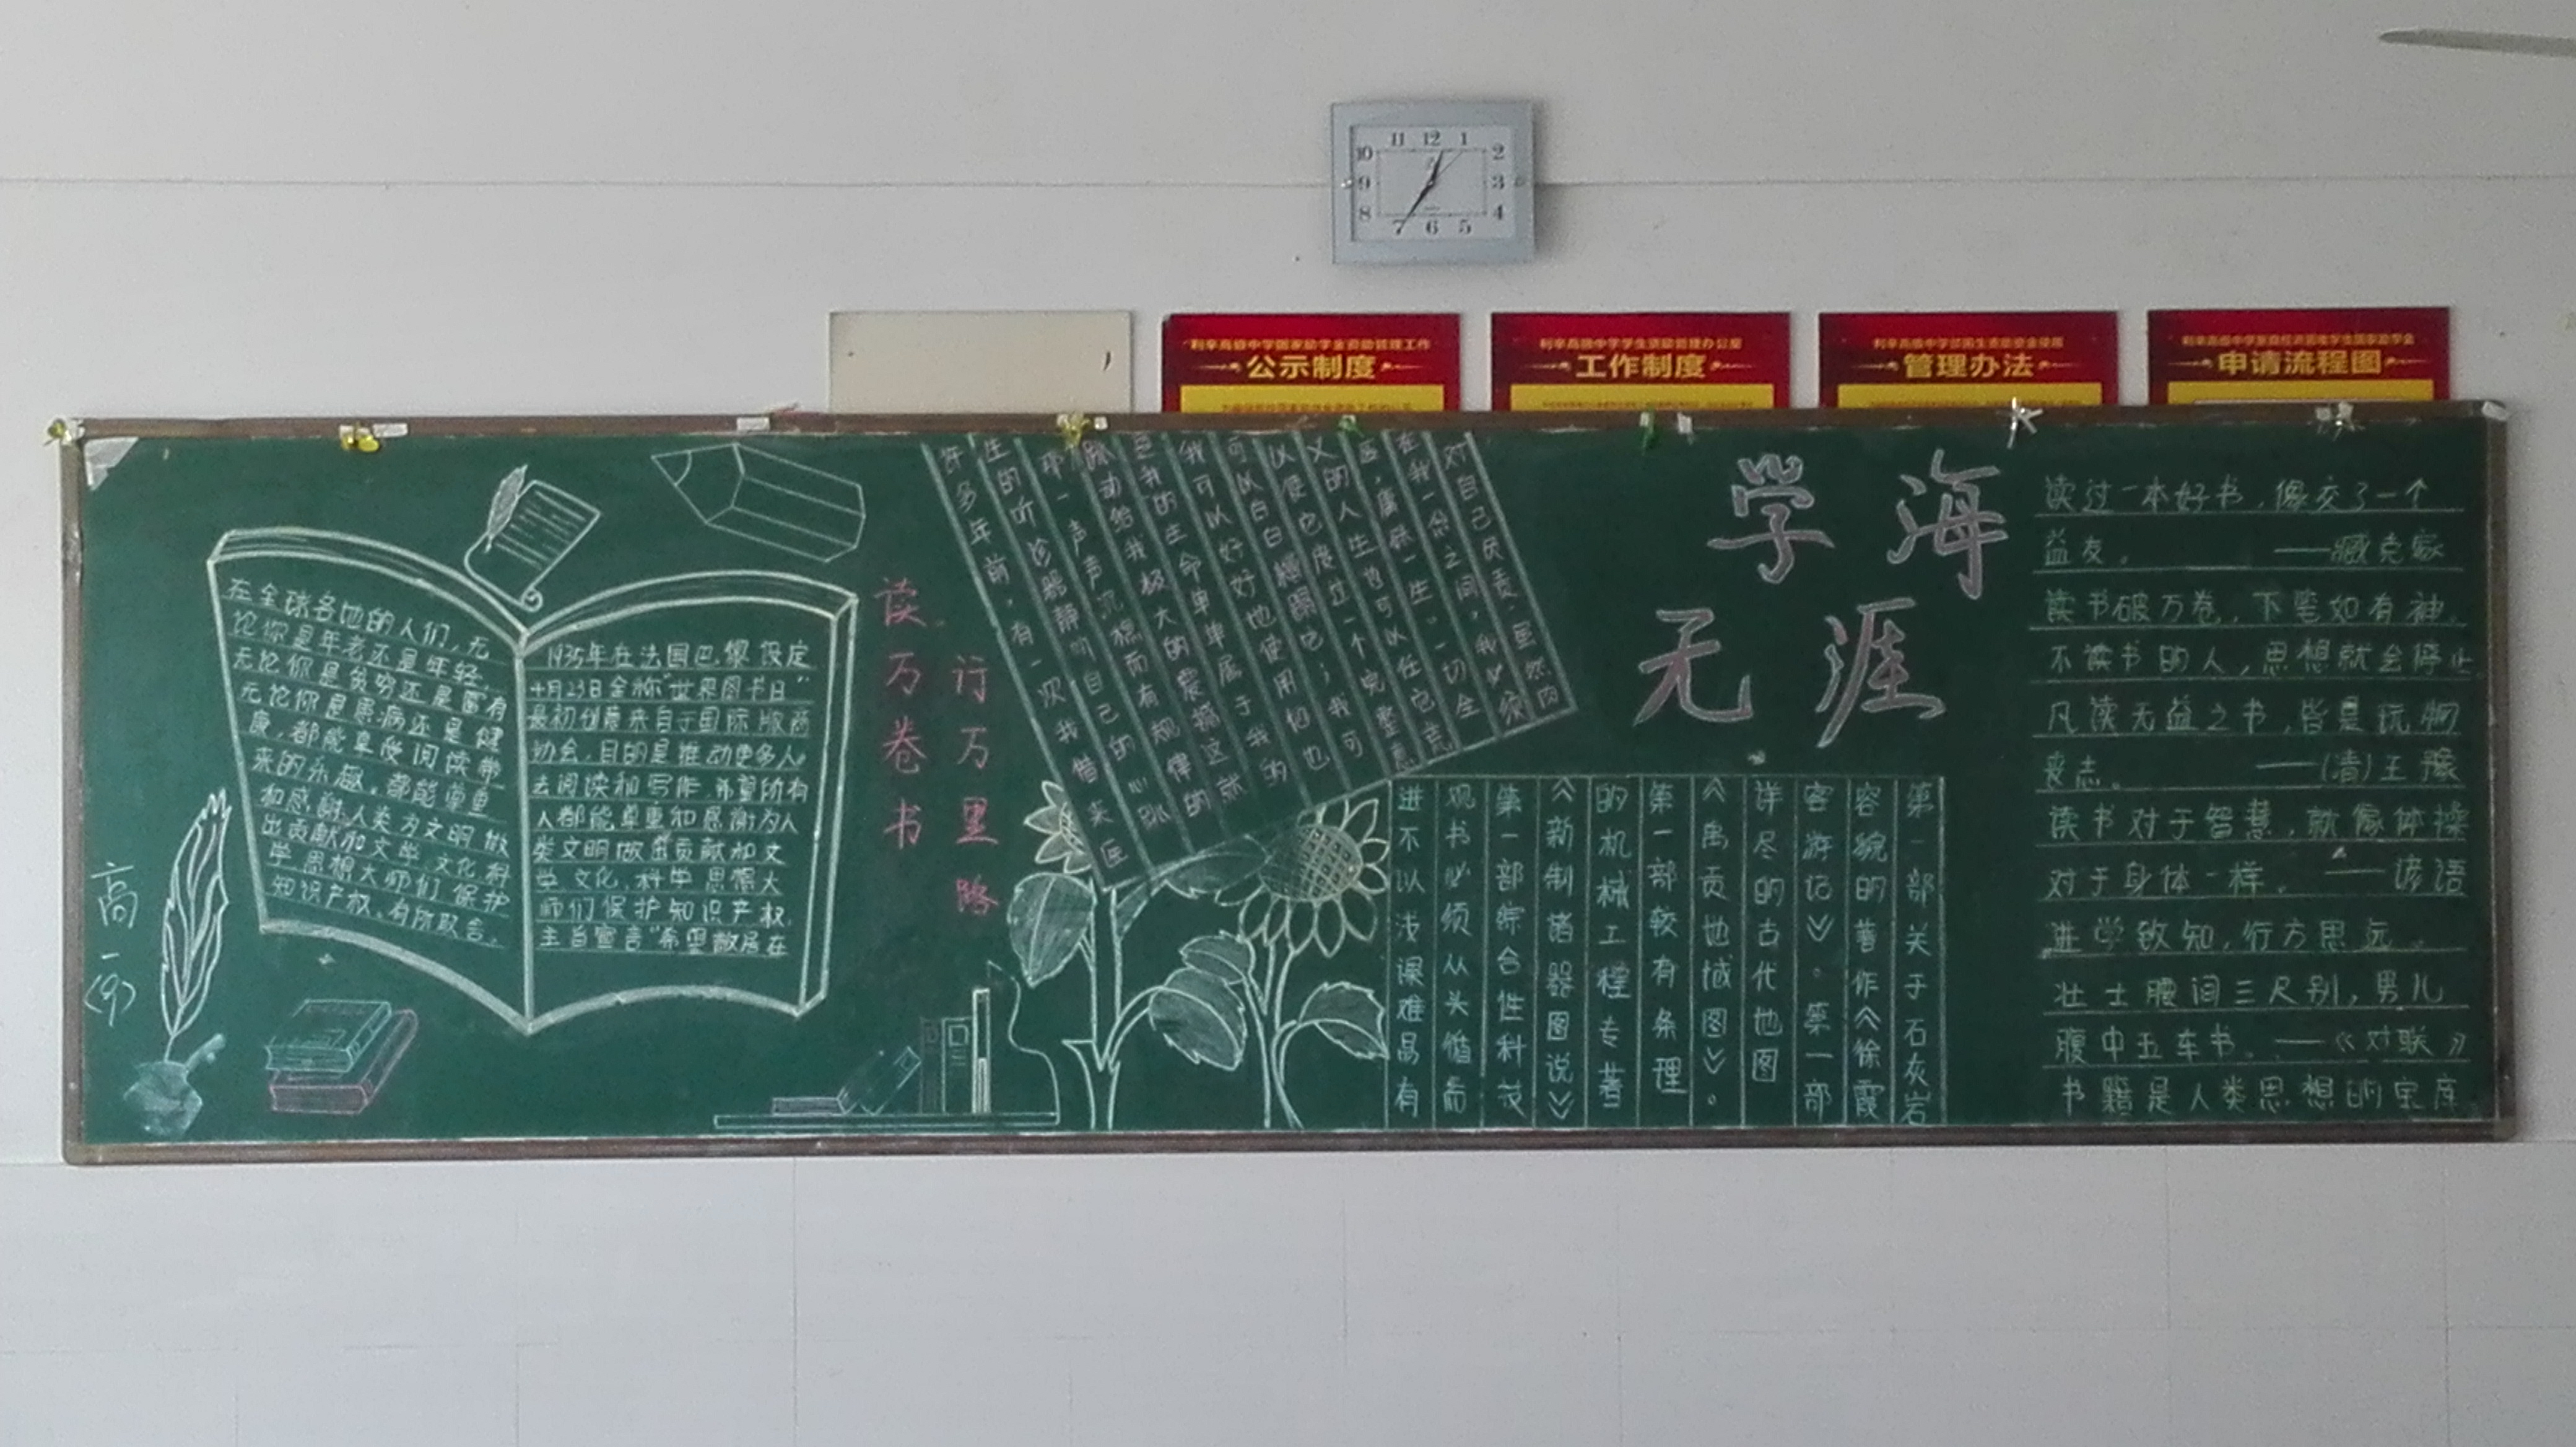 11 12 1
10 2
9 3
8 4
7 6 5
利辛高级中学国家助学金资助管理工作
公示制度
利辛高级中学学生资助管理办公室
工作制度
管理办法
申请流程图
在全球各地的人们，无
论你是年老还是年轻，
无论你是贫穷还是富有
无论你是患病还是健
康，都能享受阅读带
来的乐趣，都能尊重
和感谢人类为文明做
出贡献和文学、文化、科
学思想大师们，保护
知识产权，有所取舍。
1995年在法国巴黎设定
4月23日全称“世界图书日”
最初创意来自于国际版商
协会，目的是推动更多人
去阅读和写作，希望所有
人都能尊重和感谢为人
类文明做出贡献和文
学、文化、科学思想大
师们保护知识产权，
主旨宣言“希望散居在
高一(9)
读万卷书
行万里路
许多年前，有一次我借来医
生的听诊器静听自己的心跳
那一声声沉稳而有规律的
跳动给我极大的震撼这就
是我的生命单单属于我的
我可以好好地使用他也
可以白白糟蹋它；我可
以使它度过一个完整意
义的人生也可以任它荒
废，庸碌一生。一切全
在我一念之间，我必须
对自己负责。虽然肉
学海
无涯
第一部关于石灰岩
容貌的著作《徐霞
客游记》。第一部
详尽的古代地图
《禹贡地域图》。
第一部较有条理
的机械工程专著
《新制诸器图说》
第一部综合性科技
观书必须从头循而
进不以浅深难易有
读过一本好书，像交了一个
益友。——臧克家
读书破万卷，下笔如有神。
不读书的人，思想就会停止
凡读无益之书，皆是玩物
丧志。——(清)王豫
读书对于智慧，就像体操
对于身体一样。——谚语
进学致知，行方思远。
壮士腰间三尺剑，男儿
腹中五车书。——《对联》
书籍是人类思想的宝库